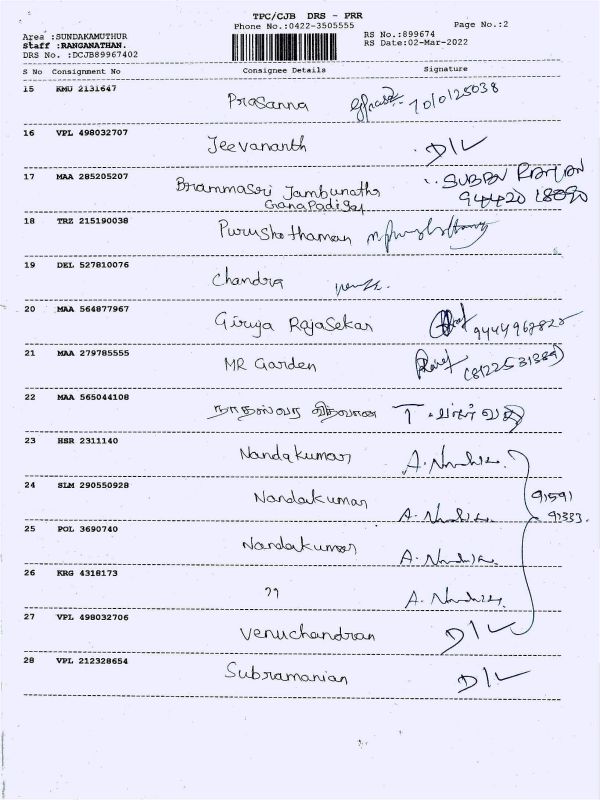 TPC/CJB DRS - PRR
Phone No.:0422-3505555 Page No.:2
Area :SUNDAKAMUTHUR RS No.:899674
Staff :RANGANATHAN. RS Date:02-Mar-2022
DRS No. :DCJB89967402
S No Consignment No Consignee Details Signature
15 KMU 2131647 Prasanna
16 VPL 498032707 Jeevananth D/L
17 MAA 285205207 Brammasri Jambunatha
Ganapadigal
18 TRZ 215190038 Purushothaman
19 DEL 527810076 Chandra
20 MAA 564877967 Girija RajaSekar 9444967825
21 MAA 279785555 MR Garden
22 MAA 565044108
23 HSR 2311140 Nandakumar
24 SLM 290550928 Nandakumar 91591
25 POL 3690740 Nandakumar 91333.
26 KRG 4318173 ??
27 VPL 498032706 Venuchandran D/L
28 VPL 212328654 Subramanian D/L